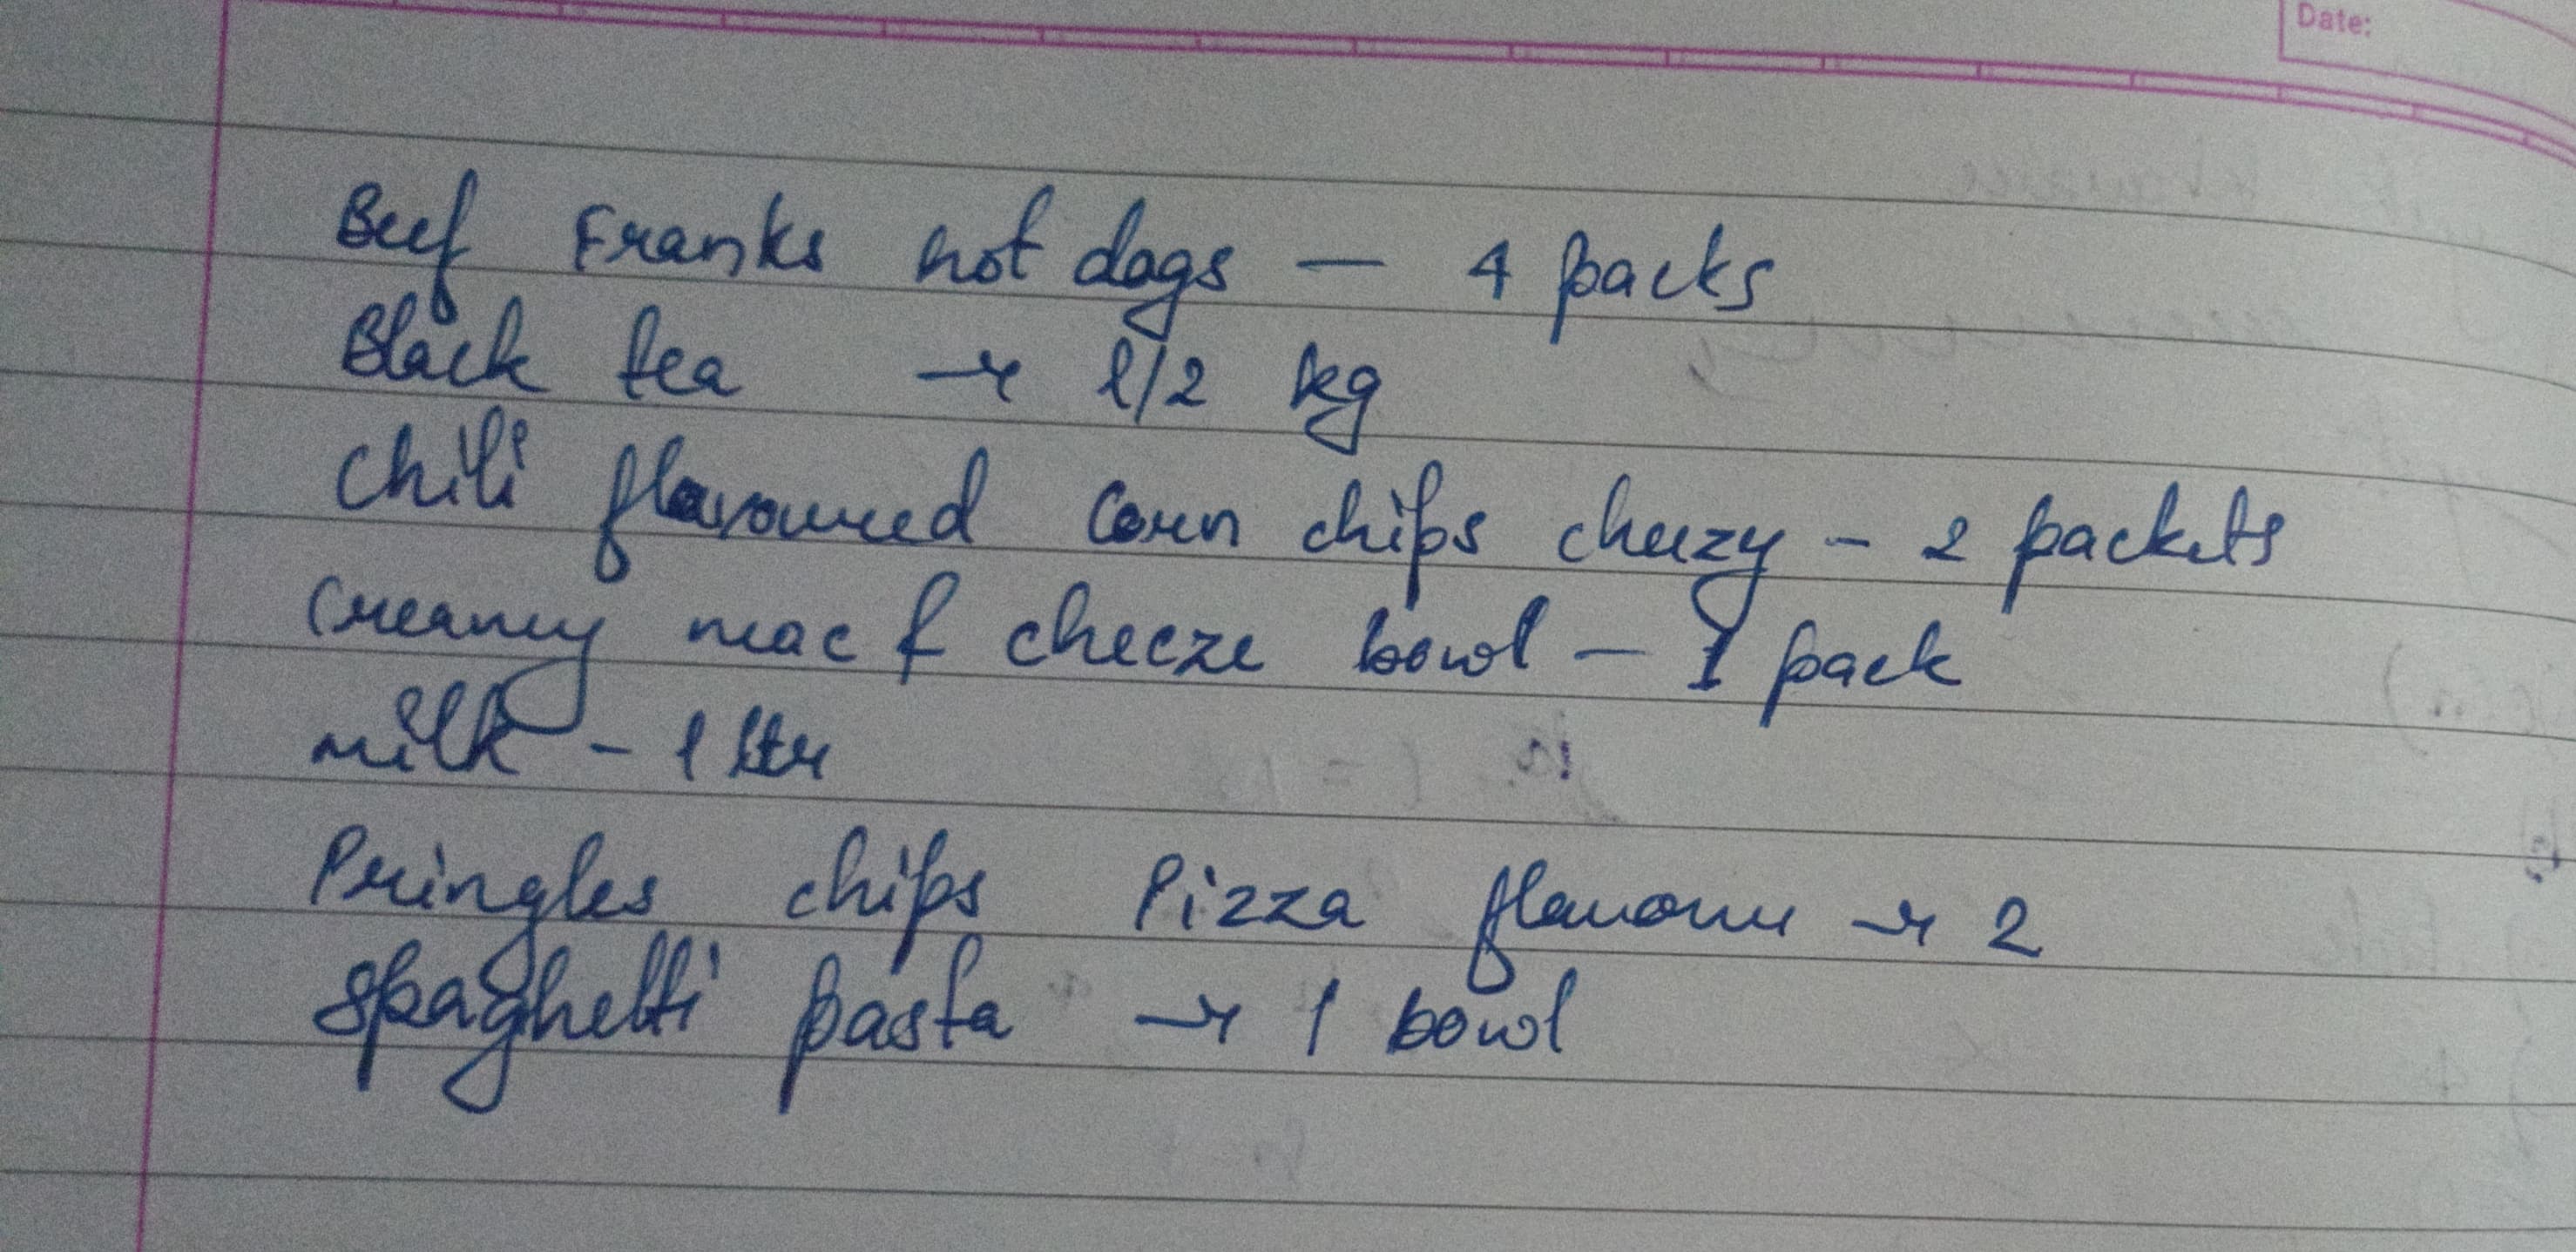 Date:
Beef Franks hot dogs — 4 packs
Black tea → 1/2 kg
Chili flavoured Corn chips cheezy - 2 packets
Creamy mac & cheeze bowl - 1 pack
milk - 1 ltr
Pringles chips Pizza flavour → 2
Spaghetti pasta → 1 bowl